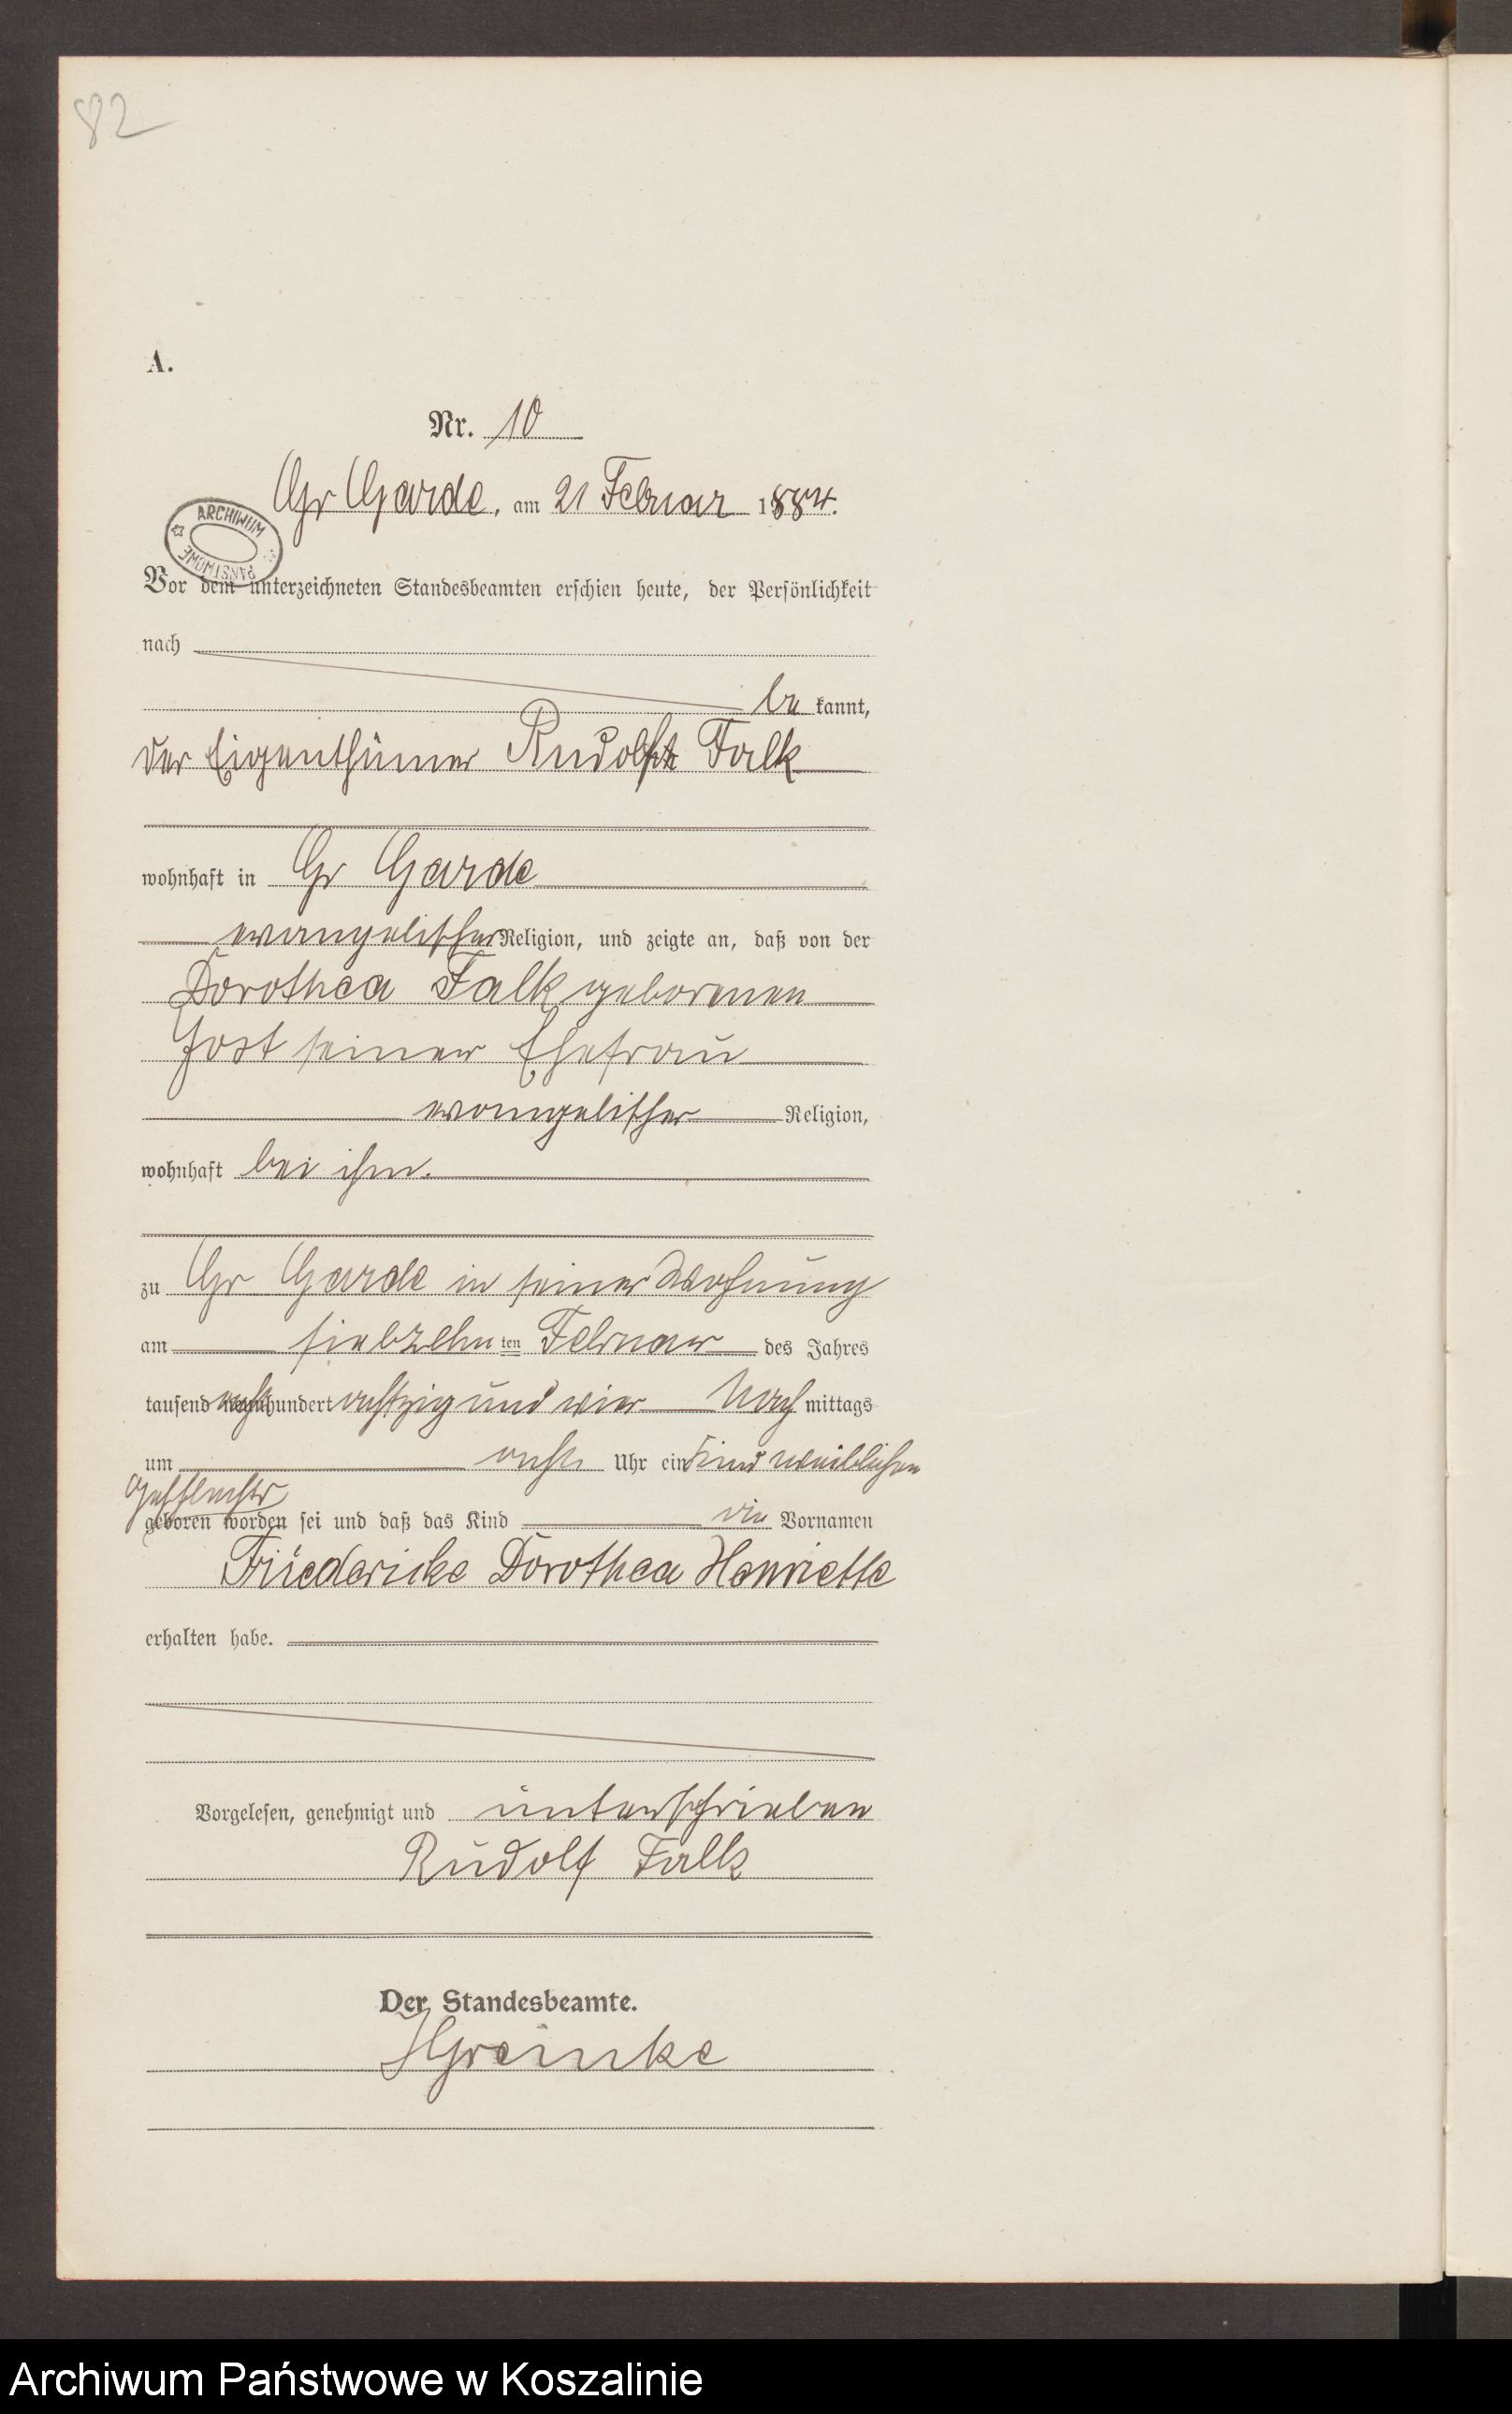 82
A.
Nr. 10
Gr Garde, am 21 Februar 1884.
ARCHIWUM
PAŃSTWOWE
Vor dem unterzeichneten Standesbeamten erschien heute, der Persönlichkeit
nach
be kannt,
der Eigenthümer Rudolf Falk
wohnhaft in Gr Garde
evangelischer Religion, und zeigte an, daß von der
Dorothea Falk geborenen
Jost seiner Ehefrau
evangelischer Religion,
wohnhaft bei ihm.
zu Gr Garde in seiner Wohnung
am siebzehn ten Februar des Jahres
tausend acht hundert achtzig und vier Nach mittags
um acht Uhr ein Kind weiblichen
Geschlechts
geboren worden sei und daß das Kind die Vornamen
Friedericke Dorothea Henriette
erhalten habe.
Vorgelesen, genehmigt und unterschrieben
Rudolf Falk
Der Standesbeamte.
HGreinke
Archiwum Państwowe w Koszalinie